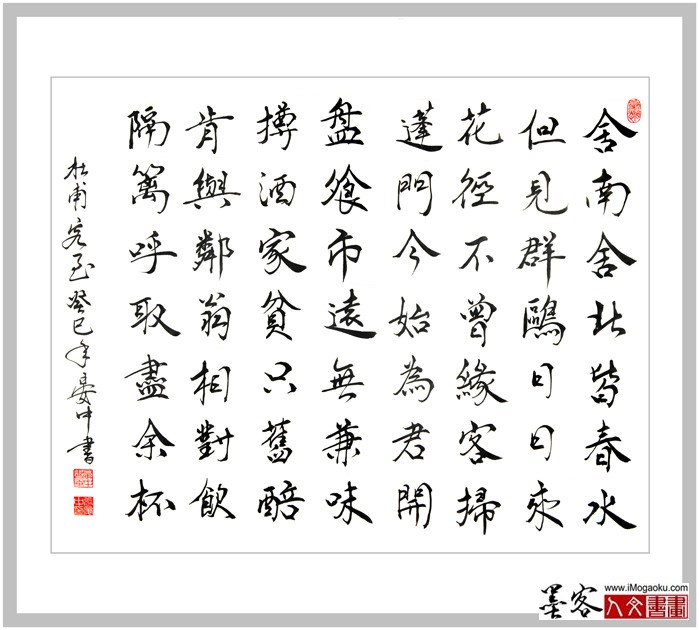 舍南舍北皆春水
但見群鷗日日來
花徑不曾緣客掃
蓬門今始為君開
盤飧市遠無兼味
樽酒家貧只舊醅
肯與鄰翁相對飲
隔籬呼取盡余杯
杜甫客至癸巳年晏中書
墨客
www.iMogaoku.com
人文書畫